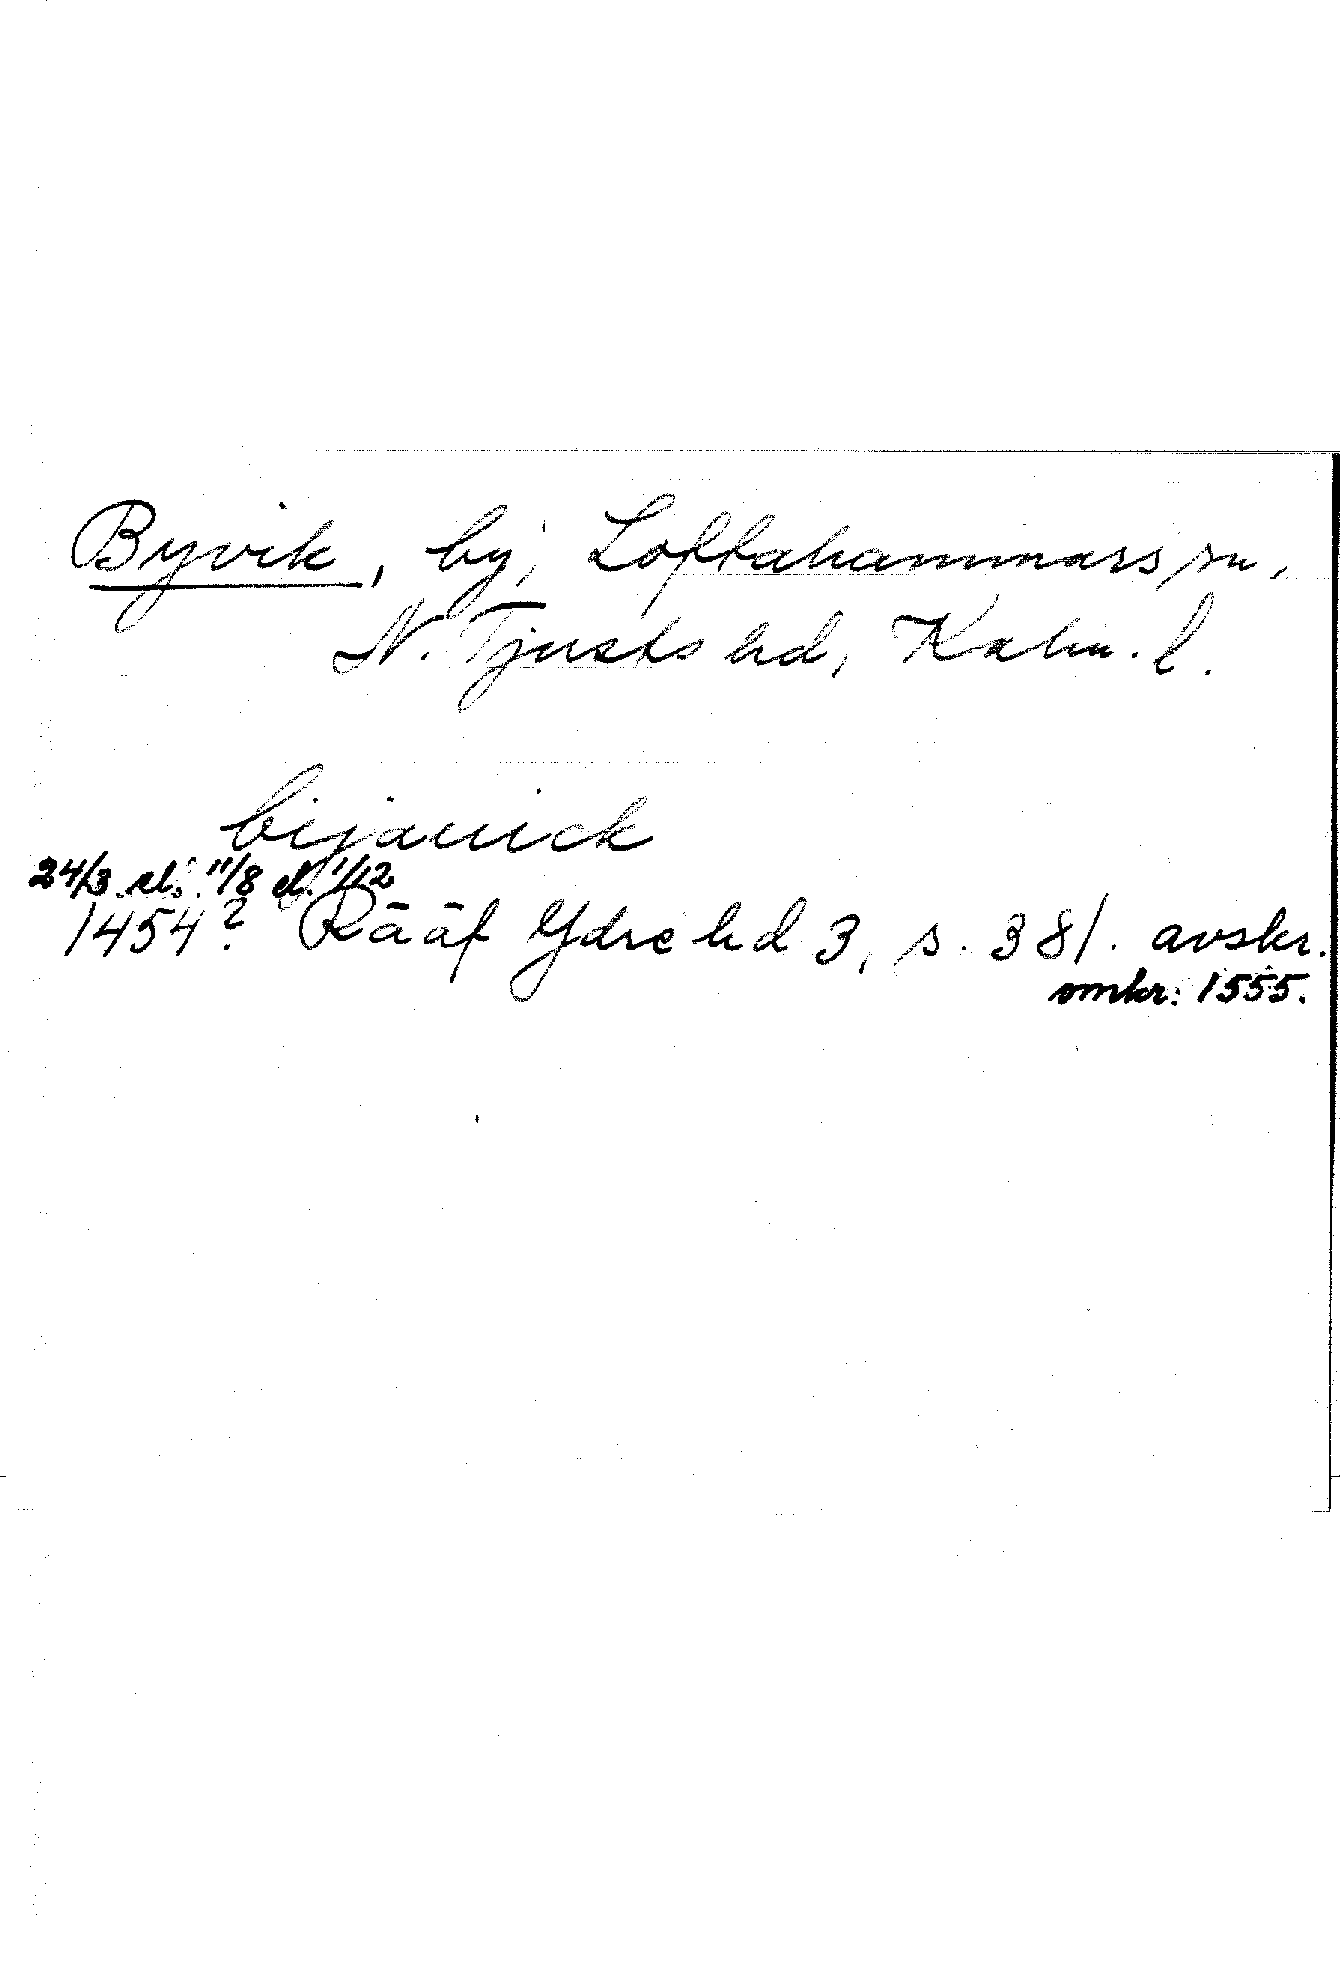 Byvik, by, Loftahammars sn,
N. Tjusts hd, Kalm. l.
bijauick
24/3 el. 11/8 el. 1/12
1454? Rääf Ydre hd 3, s. 381. avskr.
omkr. 1555.